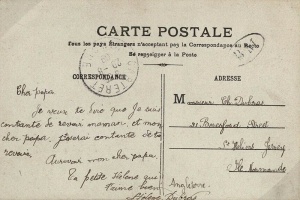 CARTE POSTALE
Tous les pays Étrangers n'acceptent pas la Correspondance au Recto
Se renseigner à la Poste
CORRESPONDANCE
ADRESSE
Cher papa
Je veux te dire que Je suis
contante de revoir maman et mon
cher papa. Jeserai contante de te
revoir
Aurevoir mon cher papa
ta petite Hélène que
t'aime bien
Hélène Dubras
Monsieur Ch. Dubras
Beresford Street
St Hélier Jersey
Ile Normande
Angleterre